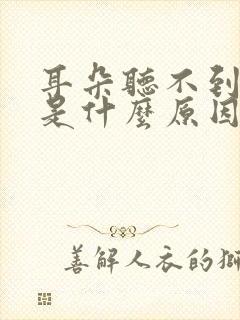 耳朵聽不到
是什麼原因
善解人衣的獅